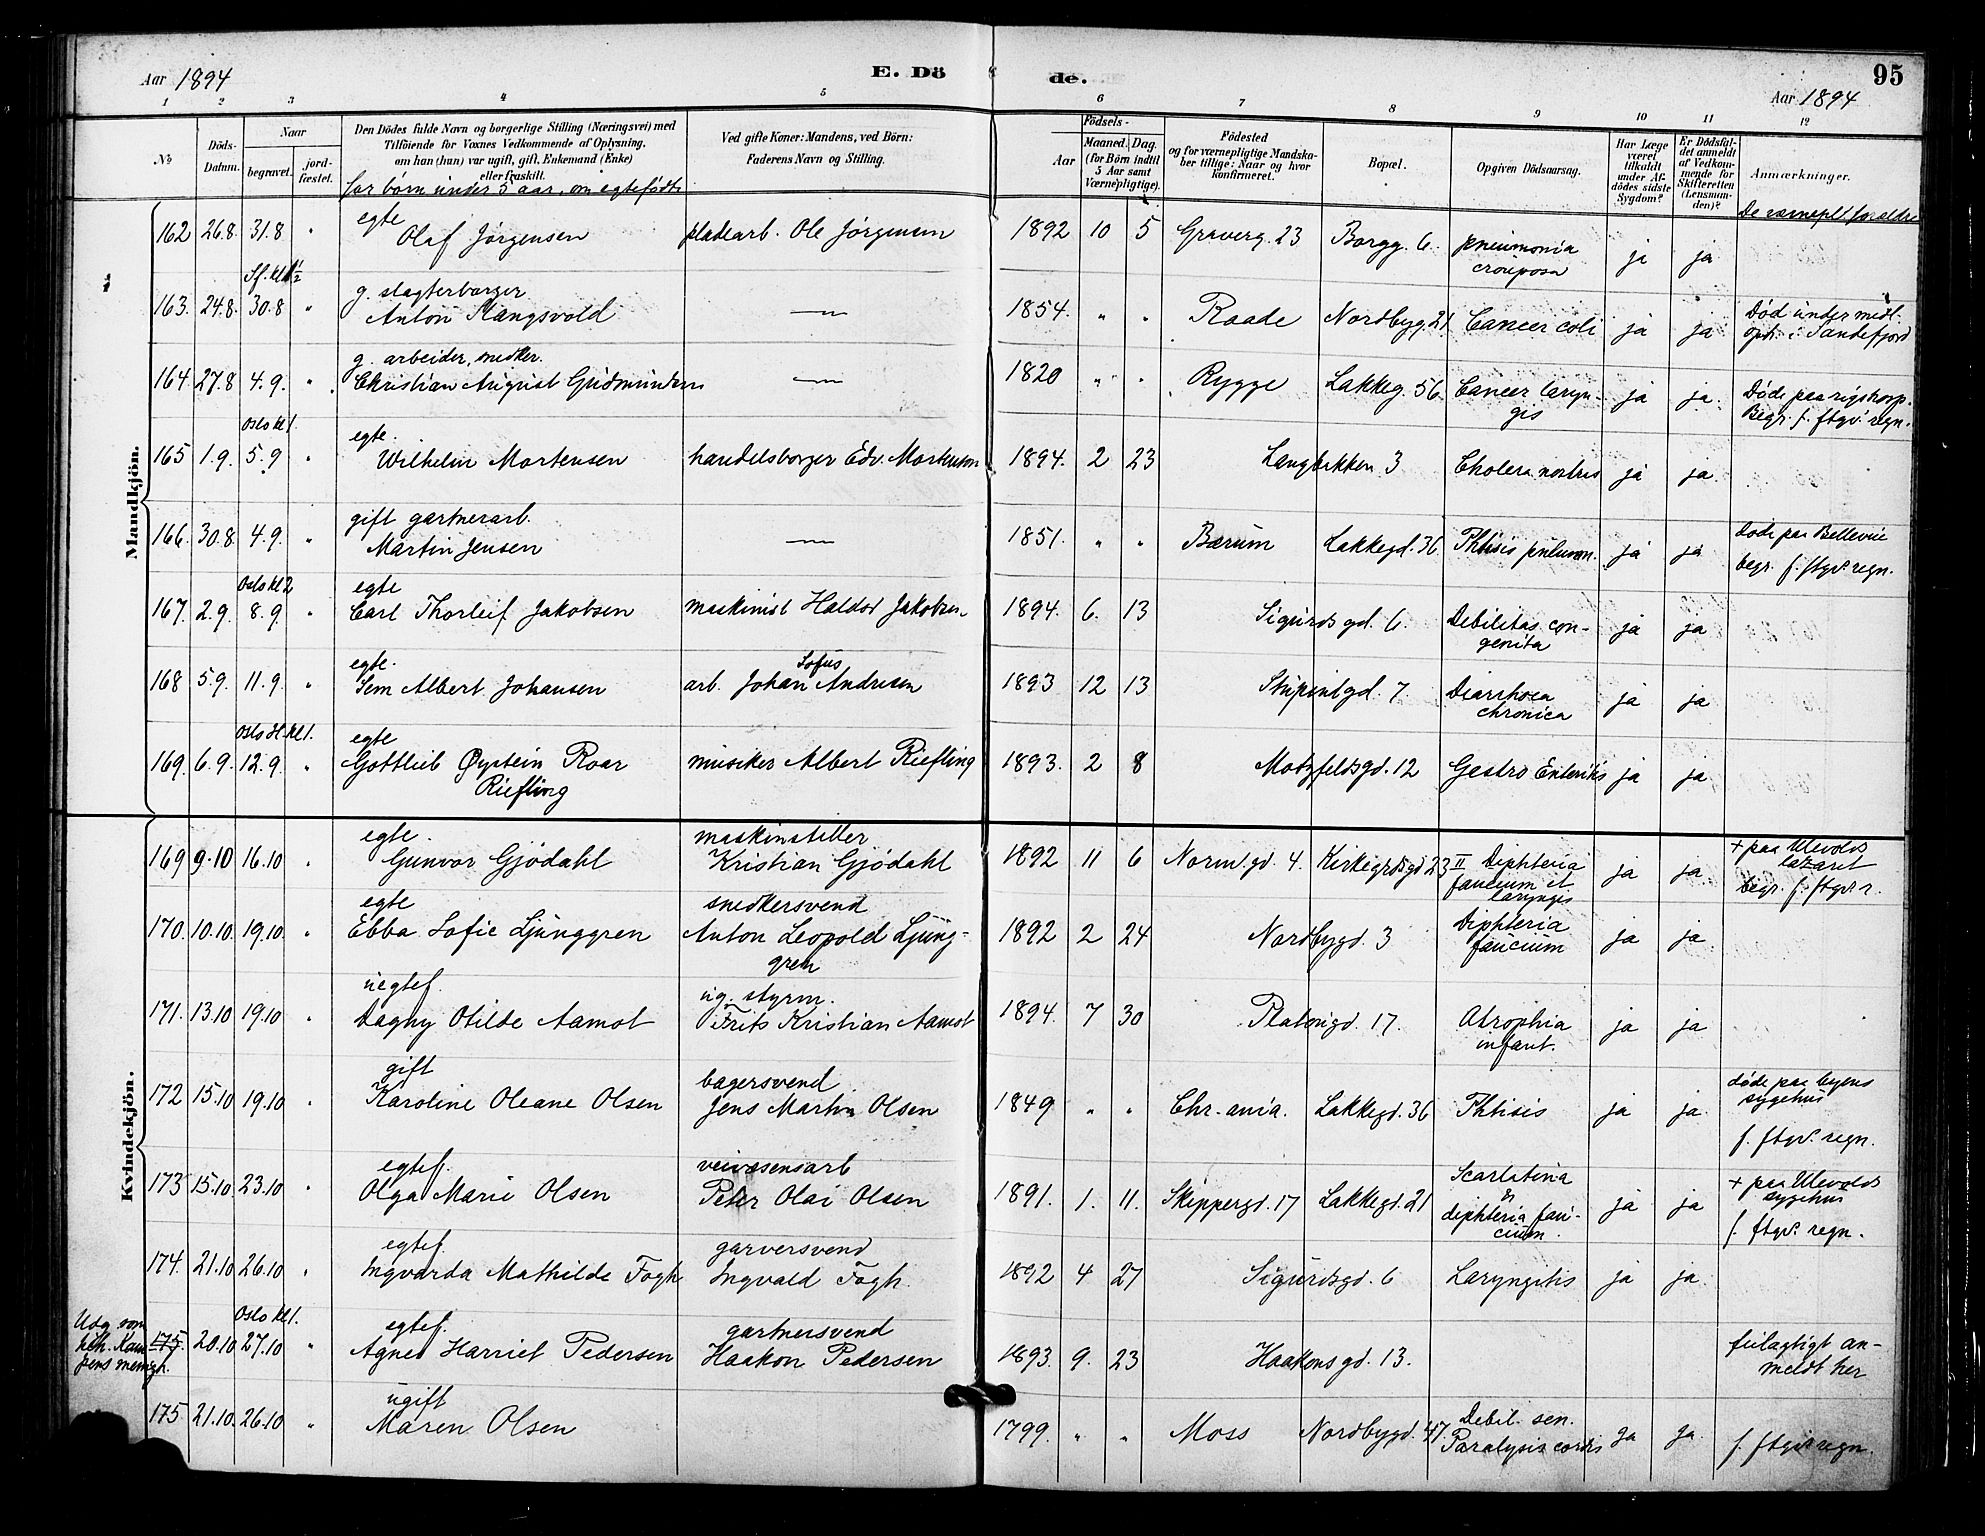 Aar 1894 E. Dö de. Aar 1894 95
1 2 3 4 5 6 7 8 9 10 11 12
No Döds-Datum. Naar begravet. jord-fæstet.
Den Dödes fulde Navn og borgerlige Stilling (Næringsvei) med
Tilföiende for Voxnes Vedkommende af Oplysning,
om han (hun) var ugift, gift, Enkemand (Enke)
eller fraskilt.
for børn under 5 aar, om egtefødt
Ved gifte Koner: Mandens, ved Börn:
Faderens Navn og Stilling.
Födsels-
Aar Maaned. Dag.
(for Börn indtil
5 Aar samt
Værnepligtige).
Födested
og for værnepligtige Mandska-
ber tillige: Naar og hvor
konfirmeret.
Bopæl.
Opgiven Dödsaarsag.
Har Læge
været
tilkaldt
under Af-
dödes sidste
Sygdom?
Er Dödsfal-
det anmeldt
af Vedkom-
mende for
Skifteretten
(Lensman-
den)?
Anmærkninger.
De værnepl. foreldre
Mandkjön.
egte
162 26.8 31.8 " Olaf Jørgensen pladearb. Ole Jørgensen 1892 10 5 Graverg. 23 Borgg. 6. pneumonia
crouposa ja ja
Sf. kl 1½
g. slagterborger
163. 24.8. 30.8 " Anton Slangsvold — 1854. " " Raade Nordbyg. 21 Cancer coli ja ja Død under midl.
oph. i Sandefjord
g. arbeider, snedker.
164 27.8 4.9. " Christian August Gudmundsen — 1820 " " Rygge Lakkeg. 56 Cancer laryn-
gis ja ja. Døde paa rigshosp.
Begr. f. ftgv. regn.
Oslo kl 1.
egte.
165 1.9. 5.9 " Wilhelm Mortensen handelsborger Edv. Mortensen 1894. 2 23 Langbakken 3 Cholera nostras ja ja.
gift gartnerarb.
166. 30.8. 4.9. " Martin Jensen — 1851. " " Bærum Lakkegd. 36 Phtisis pulmon. ja ja døde paa Bellevue
begr. f. ftgv. regn.
Oslo kl 2
egte
167. 2.9. 8.9 " Carl Thorleif Jakobsen maskinist Haldor Jakobsen 1894. 6. 13 Sigurds gd. 6. Debilitas con-
genita ja ja
egte. Sofus
168 5.9. 11.9. " Sem Albert Johansen arb. Johan Andresen 1893 12 13 Stupinsgd. 7 Diarrhoea
chronica ja ja
Oslo H. kl 1.
egte
169. 6.9. 12.9. " Gottlieb Øystein Roar musiker Albert Riefling 1893. 2 8 Motzfeldsgd. 12 Gastro Enteritis ja ja
Riefling
Kvindekjön.
egte. maskinstiller
169 9.10 16.10 " Gunvor Gjødahl Kristian Gjødahl 1892 11 6 Norm.gd. 4. Kirkegrdsgd 23 II Diphteria
faucium et
laryngis ja ja + paa Ulevolds
lazaret
begr. f. ftgv. r.
egte snedkersvend
170. 10.10. 19.10. " Ebba Sofie Ljunggren Anton Leopold Ljung-
gren 1892 2 24 Nordbygd. 3 Diphteria
faucium ja ja
uegtef. ug. styrm.
171. 13.10 19.10 " Dagny Otilde Aamot Frits Kristian Aamot 1894. 7 30 Platousgd. 17. Atrophia
infant. ja ja
gift bagersvend
172 15.10 19.10 " Karoline Oleane Olsen Jens Martin Olsen 1849 " " Chr.ania. Lakkegd. 36 Phtisis ja ja døde paa byens
sygehus
f. ftgv. regn.
egtef. veivæsensarb
173 15.10 23.10 " Olga Marie Olsen Peter Olai Olsen 1891. 1. 11. Skippergd. 17 Lakkegd. 21 Scarlatina
&
diphteria fau-
cium. ja ja + paa Ulevolds
sygehus
f. ftgv. regn.
egtef. garversvend
174. 21.10 26.10 " Ingvarda Mathilde Fogh Ingvald Fogh. 1892 4 27 Sigurdsgd. 6 Laryngitis ja ja
Oslo kl 1.
Udg som
egtef. gartnersvend
175 20.10 27.10 " Agnes Harriet Pedersen Haakon Pedersen 1893. 9. 23 Haakons gd. 13. feilagtigt an-
meldt her
ugift
175 21.10. 26.10 " Maren Olsen 1799. " " Moss Nordbygd. 47. Debil. sen.
Paralysis cordis ja ja f. ftgv. regn.